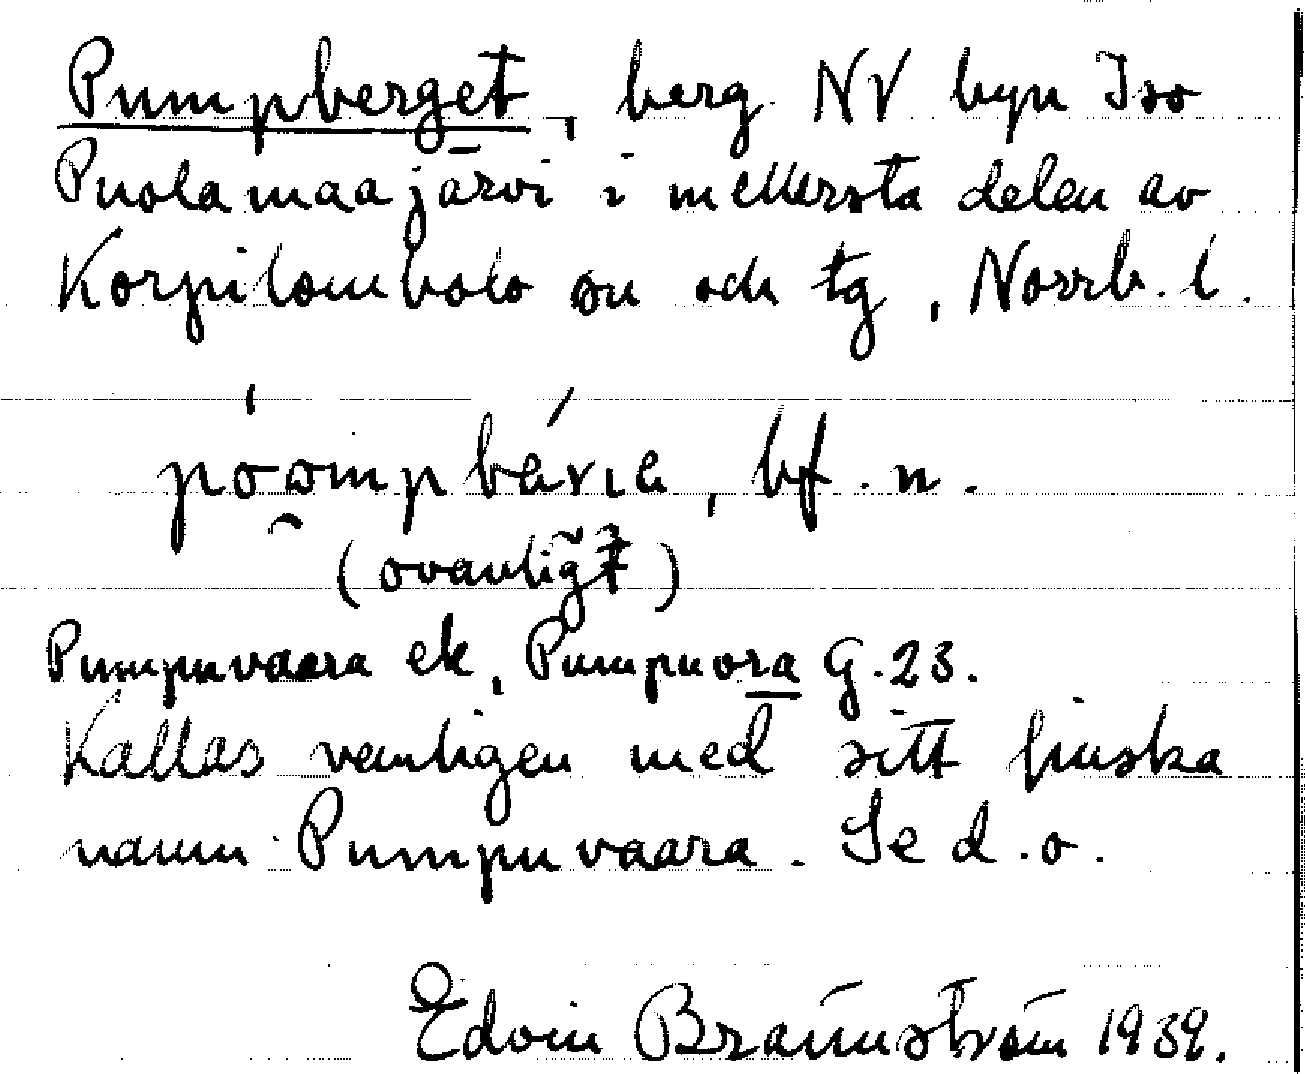 Pumpberget, berg NV byn Iso
Puolamaajärvi i mellersta delen av
Korpilombolo sn och tg, Norrb. l.
bf. n.
(ovanligt)
Pumpuvaara ek, Pumpuora G. 23.
Kallas vanligen med sitt finska
namn Pumpuvaara. Se d. o.
Edvin Brännström 1939.